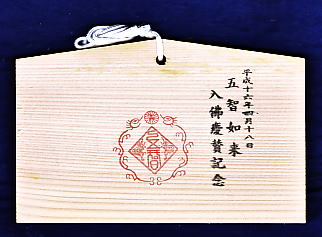 平成十六年四月十八日
五智如来
入佛慶賛記念